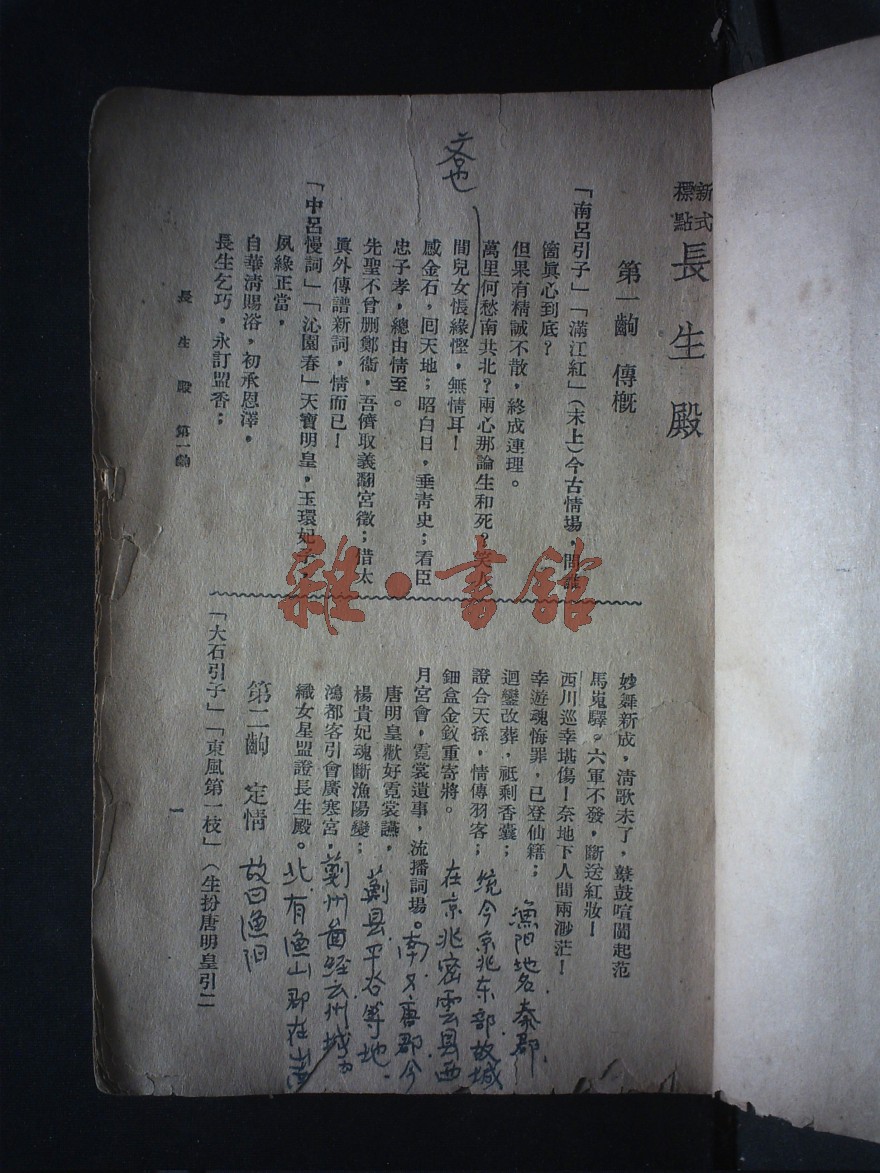 新式
標點
長生殿
第一齣　傳概
「南呂引子」「滿江紅」（末上）今古情場，問誰
箇眞心到底？
但果有精誠不散，終成連理。
萬里何愁南共北？兩心那論生和死？笑人
間兒女悵緣慳，無情耳！
感金石，囘天地；昭白日，垂靑史；看臣
忠子孝，總由情至。
先聖不曾刪鄭衞，吾儕取義翻宮徵；借太
眞外傳譜新詞，情而已！
「中呂慢詞」「沁園春」天寶明皇，玉環妃子，
夙緣正當，
自華淸賜浴，初承恩澤，
長生乞巧，永訂盟香；
妙舞新成，淸歌未了，鼙鼓喧闐起范
馬嵬驛。六軍不發，斷送紅妝！
西川巡幸堪傷！奈地下人間兩渺茫！
幸遊魂悔罪，已登仙籍；
迴鑾改葬，祇剩香囊；
證合天孫，情傳羽客；
鈿盒金釵重寄將。
月宮會，霓裳遺事，流播詞場。
唐明皇歡好霓裳讌，
楊貴妃魂斷漁陽變；
鴻都客引會廣寒宮，
織女星盟證長生殿。
第二齣　定情
「大石引子」「東風第一枝」（生扮唐明皇引二
長生殿　第一齣
一
吝也
漁阳地名秦郡.
统今京兆东部故城
在京兆密雲县西
南.又唐郡今
薊县.平谷等地.
薊州
州城
北有漁山郡在
故曰漁阳
雜·書館